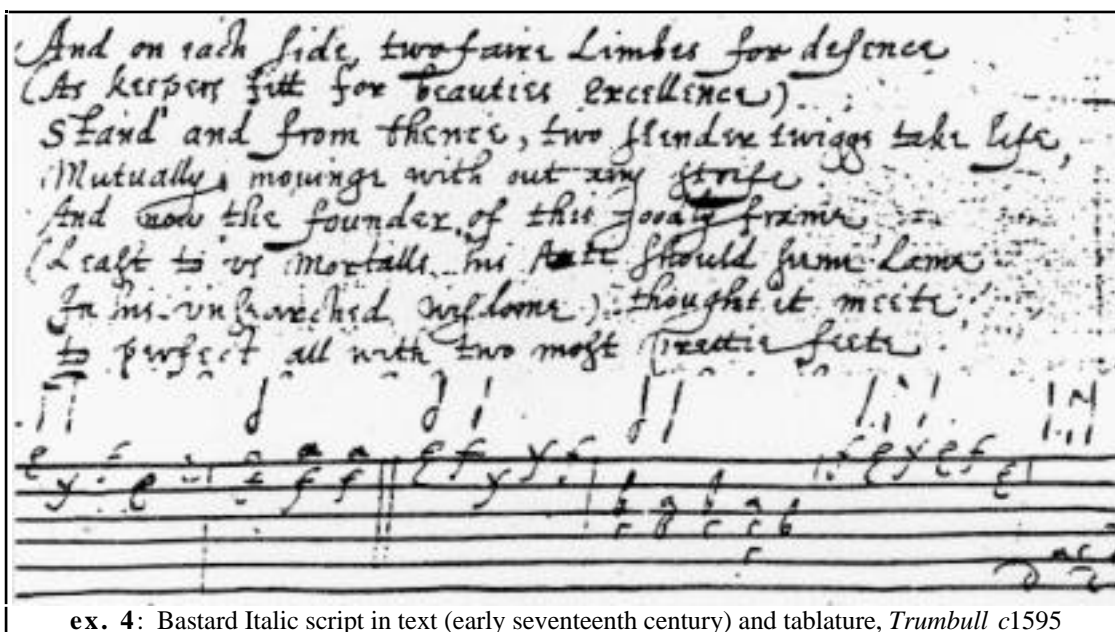 And on each side, two faire Limbes for defence
(As keepers fitt for beauties Excellence)
Stand' and from thence, two slender twiggs take life,
Mutually movinge with out any strife
And now the founder, of this goodly frame,
(Least to vs Mortalls his should seeme Lame
In his vnsearched wisdome) thought it meete,
to perfect all with two most prettie feete
ex. 4: Bastard Italic script in text (early seventeenth century) and tablature, Trumbull c1595